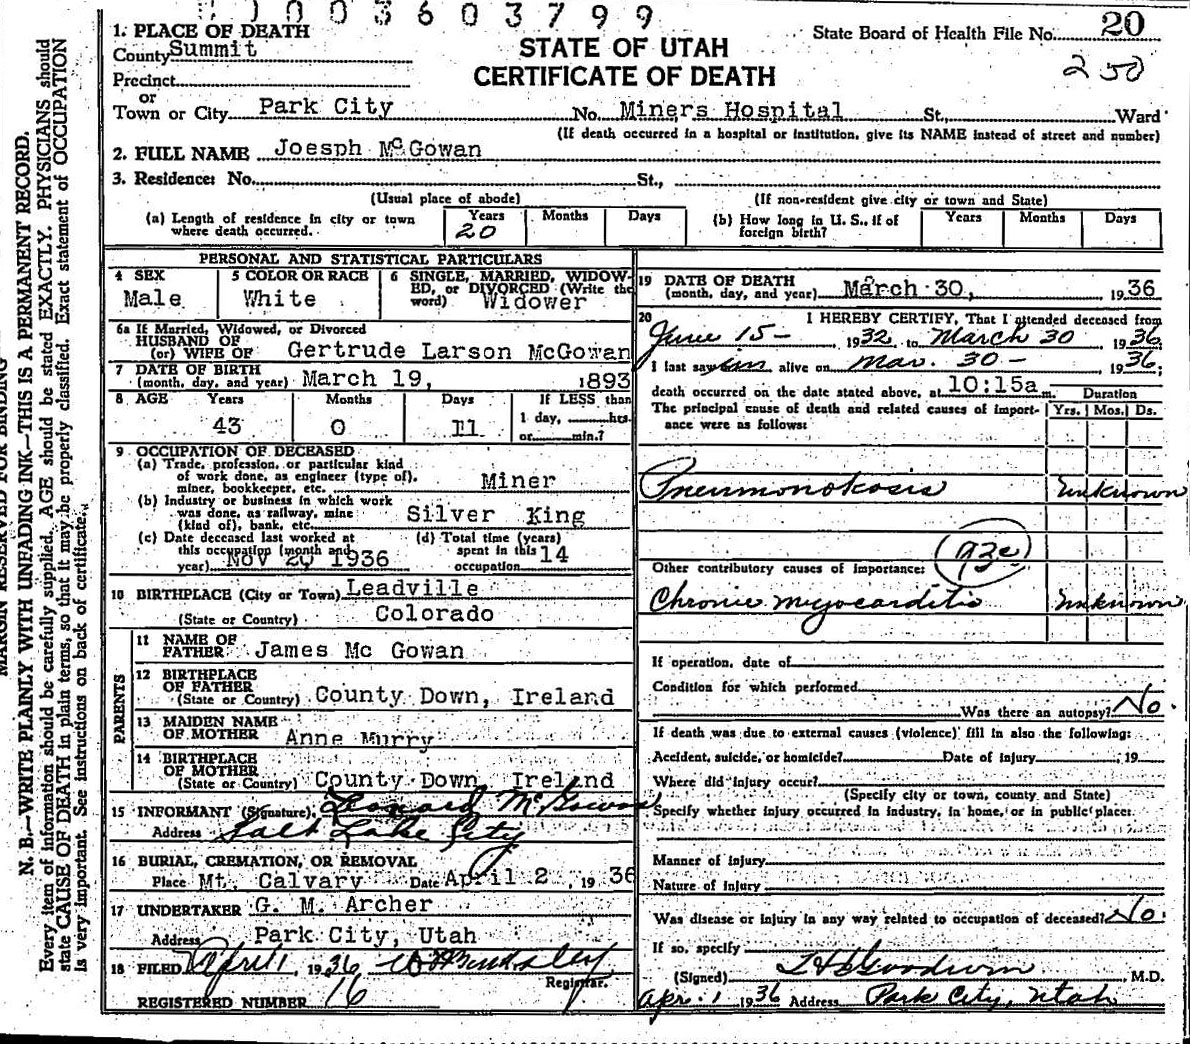 003603799
1. PLACE OF DEATH
County Summit
Precinct
or
Town or City Park City No. Miners Hospital St., Ward
(If death occurred in a hospital or institution, give its NAME instead of street and number)
STATE OF UTAH
CERTIFICATE OF DEATH
State Board of Health File No. 20
250
2. FULL NAME Joesph McGowan
3. Residence: No. St.,
(Usual place of abode) (If non-resident give city or town and State)
(a) Length of residence in city or town where death occurred. Years 20 Months Days
(b) How long in U. S., if of foreign birth? Years Months Days
PERSONAL AND STATISTICAL PARTICULARS
4 SEX Male
5 COLOR OR RACE White
6 SINGLE, MARRIED, WIDOW-
ED, or DIVORCED (Write the
word) Widower
6a If Married, Widowed, or Divorced
HUSBAND OF
(or) WIFE OF Gertrude Larson McGowan
7 DATE OF BIRTH
(month, day, and year) March 19, 1893
8 AGE Years Months Days If LESS than
43 0 11 1 day, hrs.
or min.?
9 OCCUPATION OF DECEASED
(a) Trade, profession, or particular kind
of work done, as engineer (type of),
miner, bookkeeper, etc. Miner
(b) Industry or business in which work
was done, as railway, mine
(kind of), bank, etc. Silver King
(c) Date deceased last worked at
this occupation (month and
year) Nov 20 1936
(d) Total time (years)
spent in this
occupation 14
10 BIRTHPLACE (City or Town) Leadville
(State or Country) Colorado
PARENTS
11 NAME OF
FATHER James Mc Gowan
12 BIRTHPLACE
OF FATHER
(State or Country) County Down, Ireland
13 MAIDEN NAME
OF MOTHER Anne Murry
14 BIRTHPLACE
OF MOTHER
(State or Country) County Down, Ireland
15 INFORMANT (Signature) Leonard McGowan
Address Salt Lake City
16 BURIAL, CREMATION, OR REMOVAL
Place Mt. Calvary Date April 2, 1936
17 UNDERTAKER G. M. Archer
Address Park City, Utah
18 FILED April 1, 1936
Registrar.
REGISTERED NUMBER 16
19 DATE OF DEATH
(month, day, and year) March 30, 1936
20 I HEREBY CERTIFY, That I attended deceased from
June 15- 1932, to March 30 1936,
I last saw him alive on Mar. 30- 1936;
death occurred on the date stated above, at 10:15a m.
The principal cause of death and related causes of import-
ance were as follows:
Duration
Yrs. Mos. Ds.
Pneumonokosis Unknown
93c
Other contributory causes of importance:
Chronic myocarditis Unknown
If operation, date of
Condition for which performed
Was there an autopsy? No.
If death was due to external causes (violence) fill in also the following:
Accident, suicide, or homicide? Date of injury 19
Where did injury occur?
(Specify city or town, county and State)
Specify whether injury occurred in industry, in home, or in public place:
Manner of injury
Nature of injury
Was disease or injury in any way related to occupation of deceased? No.
If so, specify
(Signed) Goodwin M.D.
Apr. 1 1936 Address Park City, Utah
MARGIN RESERVED FOR BINDING
N. B.—WRITE PLAINLY WITH UNFADING INK—THIS IS A PERMANENT RECORD.
Every item of information should be carefully supplied. AGE should be stated EXACTLY. PHYSICIANS should
state CAUSE OF DEATH in plain terms, so that it may be properly classified. Exact statement of OCCUPATION
is very important. See instructions on back of certificate.